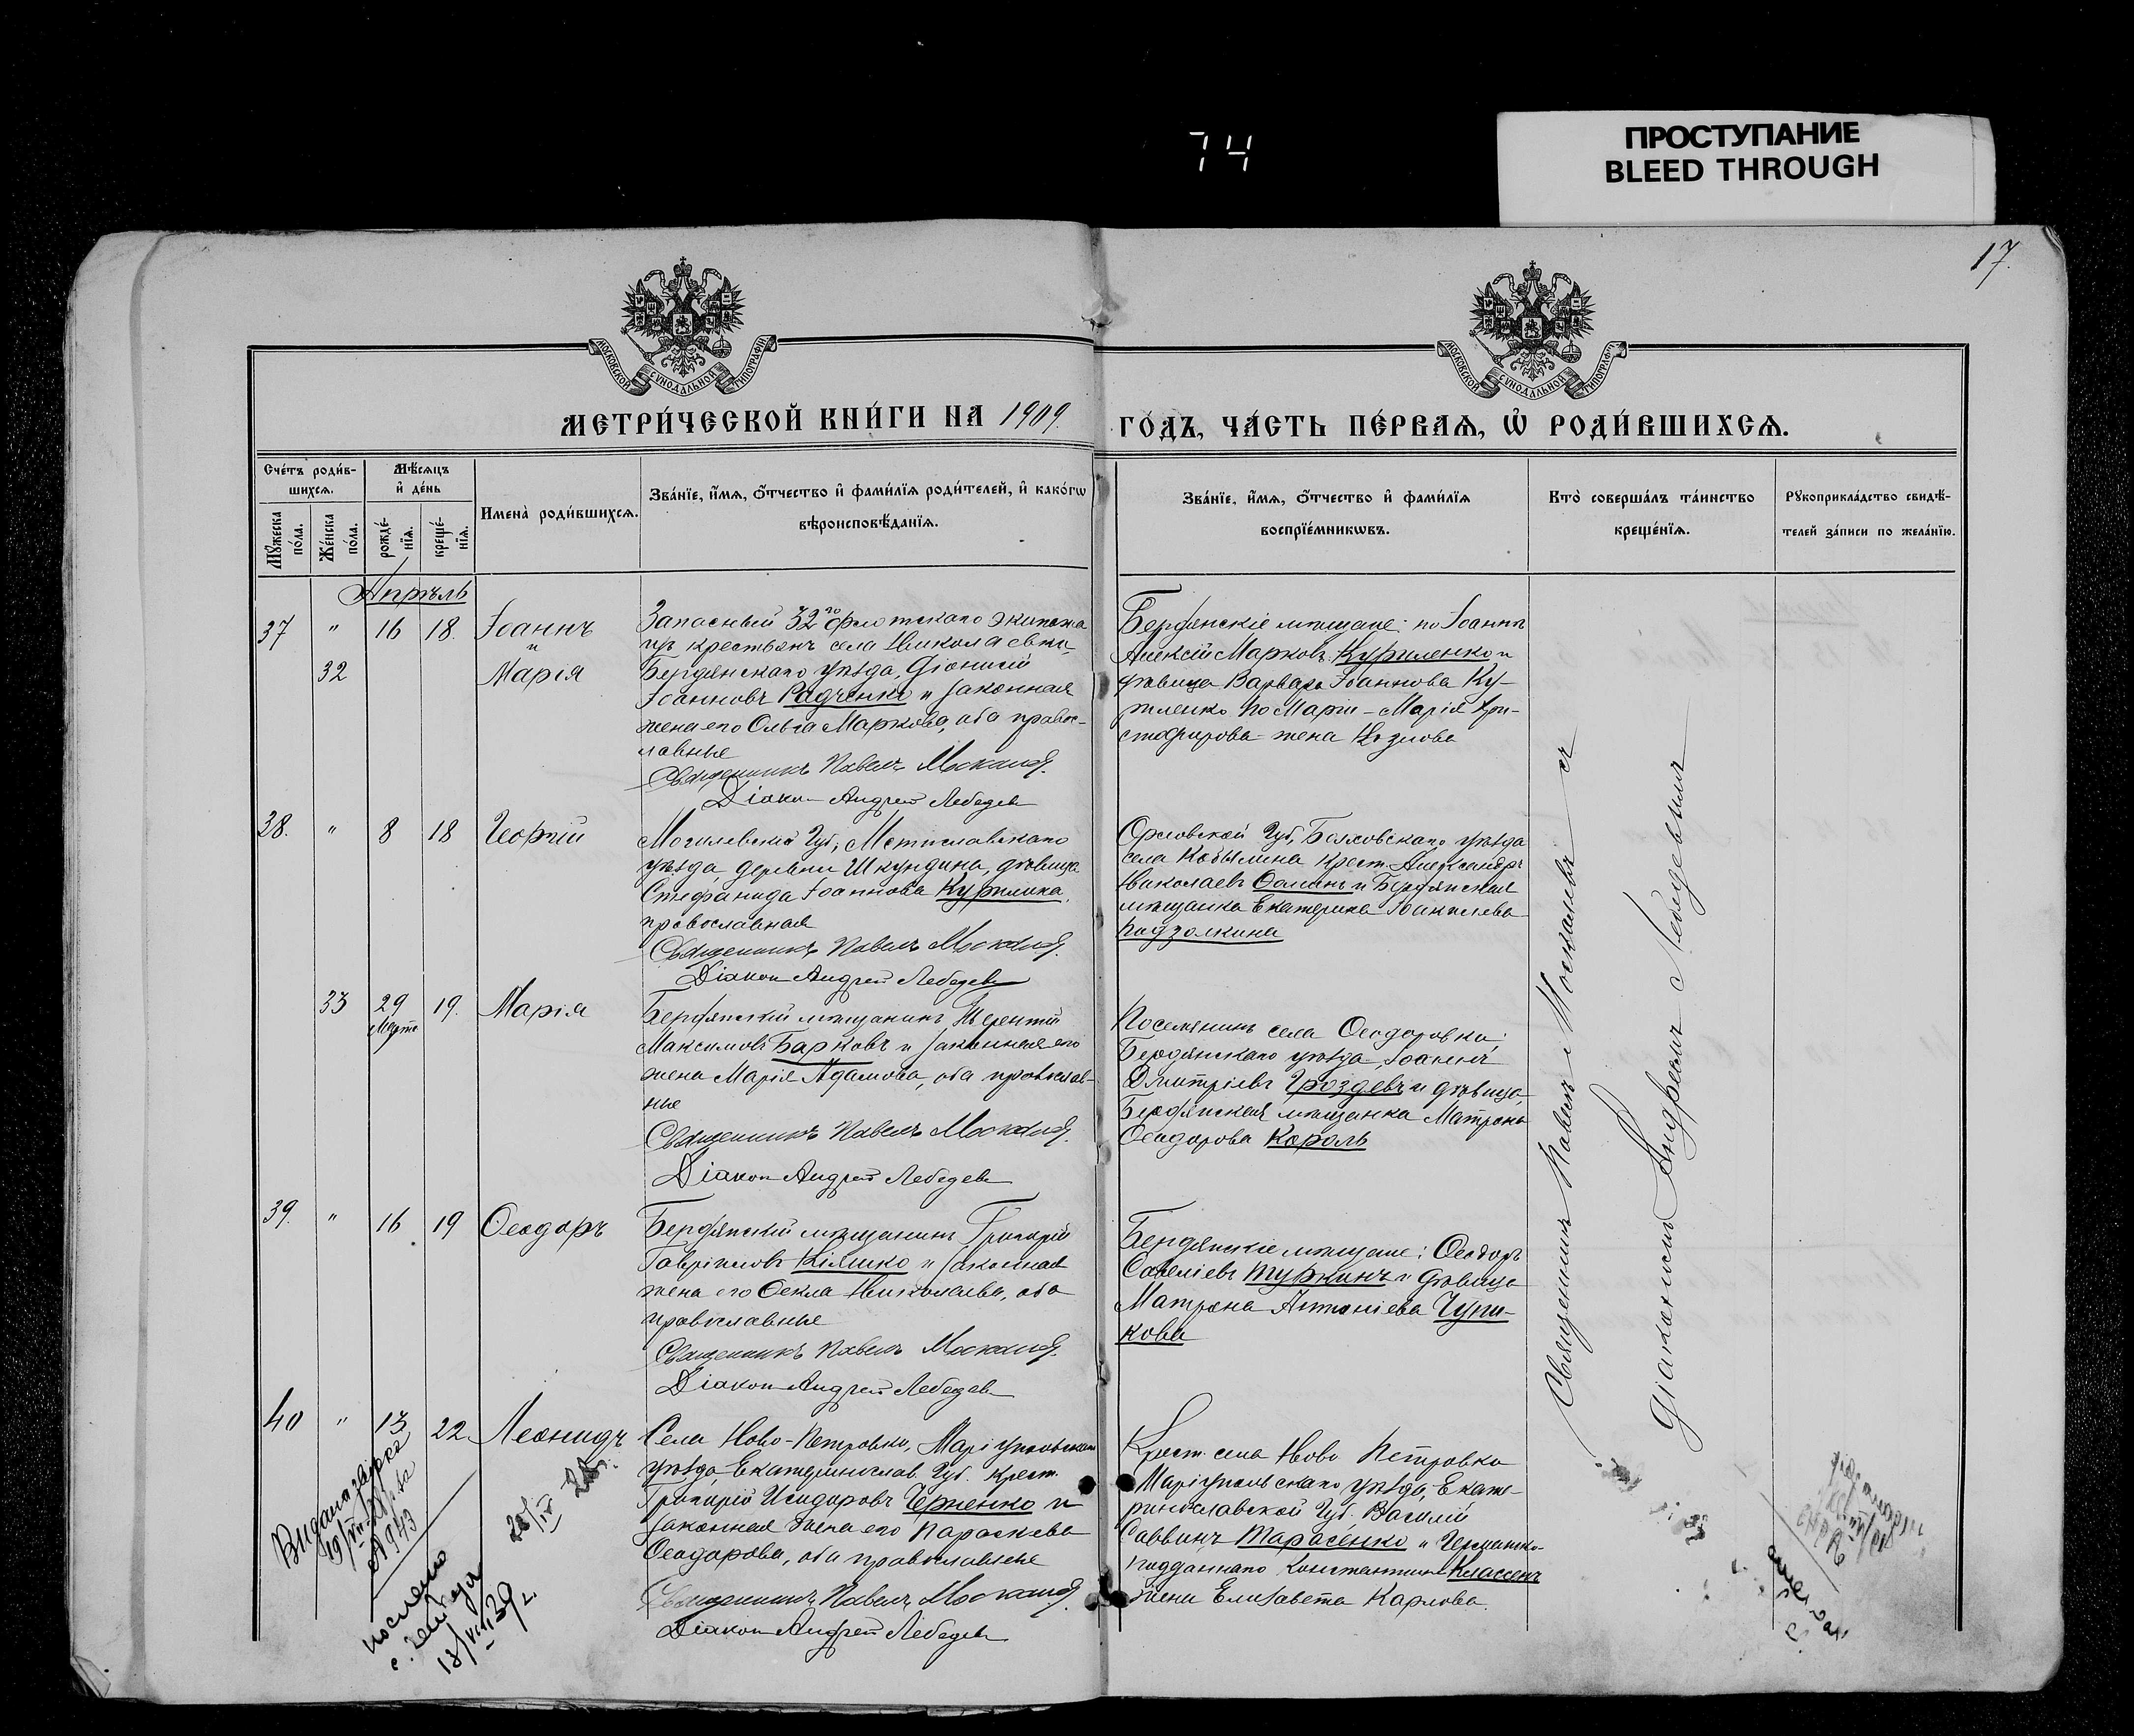 74
ПРОСТУПАНИЕ
BLEED THROUGH
17.
МОСКОВСКОЙ СѴНОДАЛЬНОЙ ТИПОГРАФІИ
МОСКОВСКОЙ СѴНОДАЛЬНОЙ ТИПОГРАФІИ
МЕТРИ́ЧЕСКОЙ КНИ́ГИ НА 1909
ГО́ДЪ, ЧА́СТЬ ПЕ́РВАѦ, Ѡ҆ РОДИ́ВШИХСѦ.
Сче́тъ роди́в-
шихсѧ.
Мѣ́сѧцъ
и҆ де́нь
Мꙋ́жеска
по́ла.
Же́нска
по́ла.
рожде́-
нїѧ.
креще́-
нїѧ.
Имена̀ роди́вшихсѧ.
Зва́нїе, и҆́мѧ, ѻ҆́тчество и҆ фами́лїѧ роди́телей, и҆ како́гѡ
вѣроисповѣ́данїѧ.
Зва́нїе, и҆́мѧ, ѻ҆́тчество и҆ фами́лїѧ
воспрїе́мникѡвъ.
Кто̀ соверша́лъ та́инство
креще́нїѧ.
Рꙋкоприкла́дство свидѣ́-
телей за́писи по жела́нїю.
Апрѣль
37 " 16 18. Іоаннъ
и
32 Марія
Запасный 32го флотскаго экипажа
изъ крестьянъ села Николаевки
Бердянскаго уѣзда, Діонисій
Іоанновъ Радченко и законная
жена его Ольга Маркова, оба правос-
лавные
Священникъ Павелъ Москалевъ
Діаконъ Андрей Лебедевъ
Бердянскіе мѣщане: по Іоаннѣ
Алексій Марковъ Кириленко и
дѣвица Варвара Іоаннова Ки-
риленко по Маріи – Марія Хри-
стофорова жена Козлова
38. " 8 18 Георгій
Могилевской Губ., Мстиславскаго
уѣзда, деревни Шкундина, дѣвица
Стефанида Іоаннова
православная
Священникъ Павелъ Москалевъ
Діаконъ Андрей Лебедевъ
Орловской Губ., Болховскаго уѣзда
села Кобылина крест. Александръ
Николаевъ Ѳоминъ и Бердянская
мѣщанка Екатерина
Подзолкина
33 29 19. Марія
Марта
Бердянскій мѣщанинъ Терентій
Максимовъ Барковъ и законная его
жена Марія Адамова, оба православ-
ные
Священникъ Павелъ Москалевъ
Діаконъ Андрей Лебедевъ
Поселянинъ села Ѳеодоровки,
Бердянскаго уѣзда, Іоаннъ
Дмитріевъ Гроздевъ и дѣвица,
Бердянская мѣщанка Матрона
Ѳеодорова Король
39. " 16 19 Ѳеодоръ
Бердянскій мѣщанинъ Григорій
Гавріиловъ Кіяшко и законная
жена его Ѳекла Николаева, оба
православные
Священникъ Павелъ Москалевъ
Діаконъ Андрей Лебедевъ
Бердянскіе мѣщане: Ѳеодоръ
Савеліевъ Туркинъ и дѣвица
Матрона Антоніева Чупи-
кова
40 " 13 22 Леонидъ
Села Ново-Петровки, Маріупольскаго
уѣзда, Екатеринослав. Губ. крест.
Григорій Исидоровъ Черненко и
законная жена его Параскева
Ѳеодорова, оба православные
Священникъ Павелъ Москалевъ
Діаконъ Андрей Лебедевъ
Крест. села Ново Петровки
Маріупольскаго уѣзда, Екате-
ринославской Губ. Василій
Саввинъ Тарасенко и Германско-
подданнаго Константина Классенъ
жена Елисавета Карлова.
Священникъ Павелъ Москалевъ съ
Діакономъ Андреемъ Лебедевымъ
Видана
послано